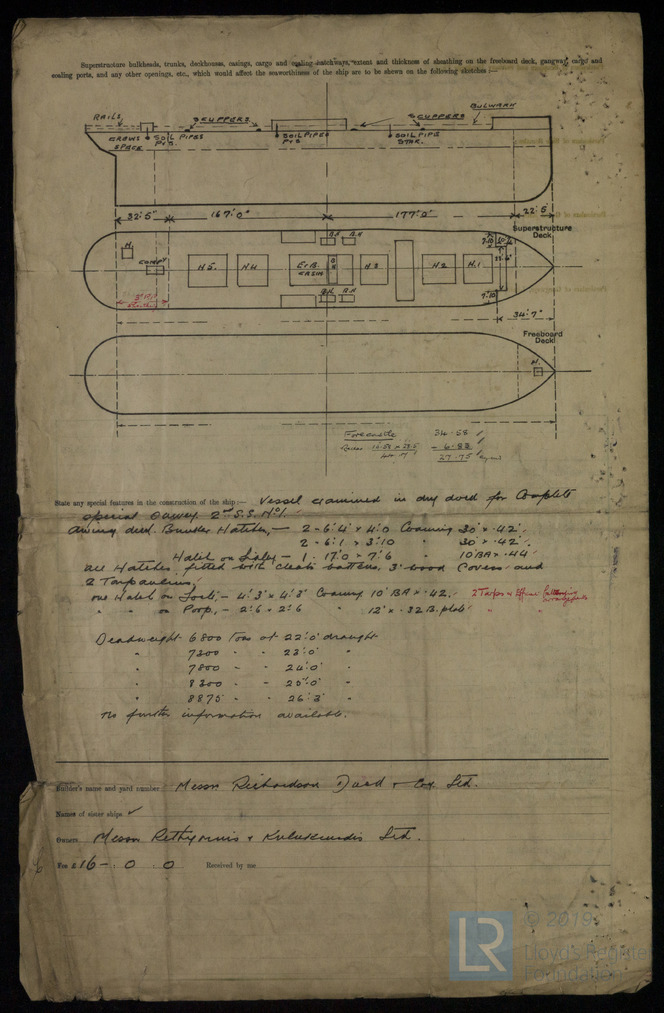 Superstructure bulkheads, trunks, deckhouses, casings, cargo and coaling hatchways, extent and thickness of sheathing on the freeboard deck, gangway, cargo and
coaling ports, and any other openings, etc., which would affect the seaworthiness of the ship are to be shewn on the following sketches :—
RAILS
SCUPPERS
SCUPPERS
BULWARK
CREWS SPACE
SOIL PIPES P+S.
SOIL PIPES P+S
SOIL PIPE STAR.
32'.5" 167'.0" 177'.0" 22'.5"
Superstructure Deck.
H.
COMP'Y
H 5. H 4 E & B. CASIN H 3 H 2 H.1
B.H. B.H
B.H. B.H
7'.10"
7'.10"
34'.7"
Freeboard Deck
H.
Forecastle 34.58
- 6.83
27.75
State any special features in the construction of the ship :— Vessel examined in dry dock for Complete
Special Survey 2nd S.S. No 1.
Awning deck. Bunker Hatches, — 2 - 6'.4" x 4'.0 Coaming 30" x .42".
2 - 6'.1 x 3'.10 " 30" x .42".
Hatch on — 1 . 17'.0 x 7'.6 " 10"BA x .44"
all Hatches fitted with cleats battens, 3" wood Covers and
2 Tarpaulins.
one Hatch on — 4'.3" x 4'.3" Coaming 10" BA x .42. 2 Tarps & battening
" " on Poop, — 2'.6 x 2'.6 " 12" x .32 B. plate " "
Deadweight 6800 Tons at 22'.0" draught
" 7300 " " 23'.0" "
" 7800 " " 24'.0" "
" 8300 " " 25'.0" "
" 8875 " " 26'.3" "
No further information available.
Builder's name and yard number Messrs Richardson Duck & Coy. Ltd.
Names of sister ships
Owners Messrs Rethymnis & Kulukundis Ltd.
Fee £ 16 - : 0 : 0 Received by me
LR
© 2019
Lloyd's Register
Foundation